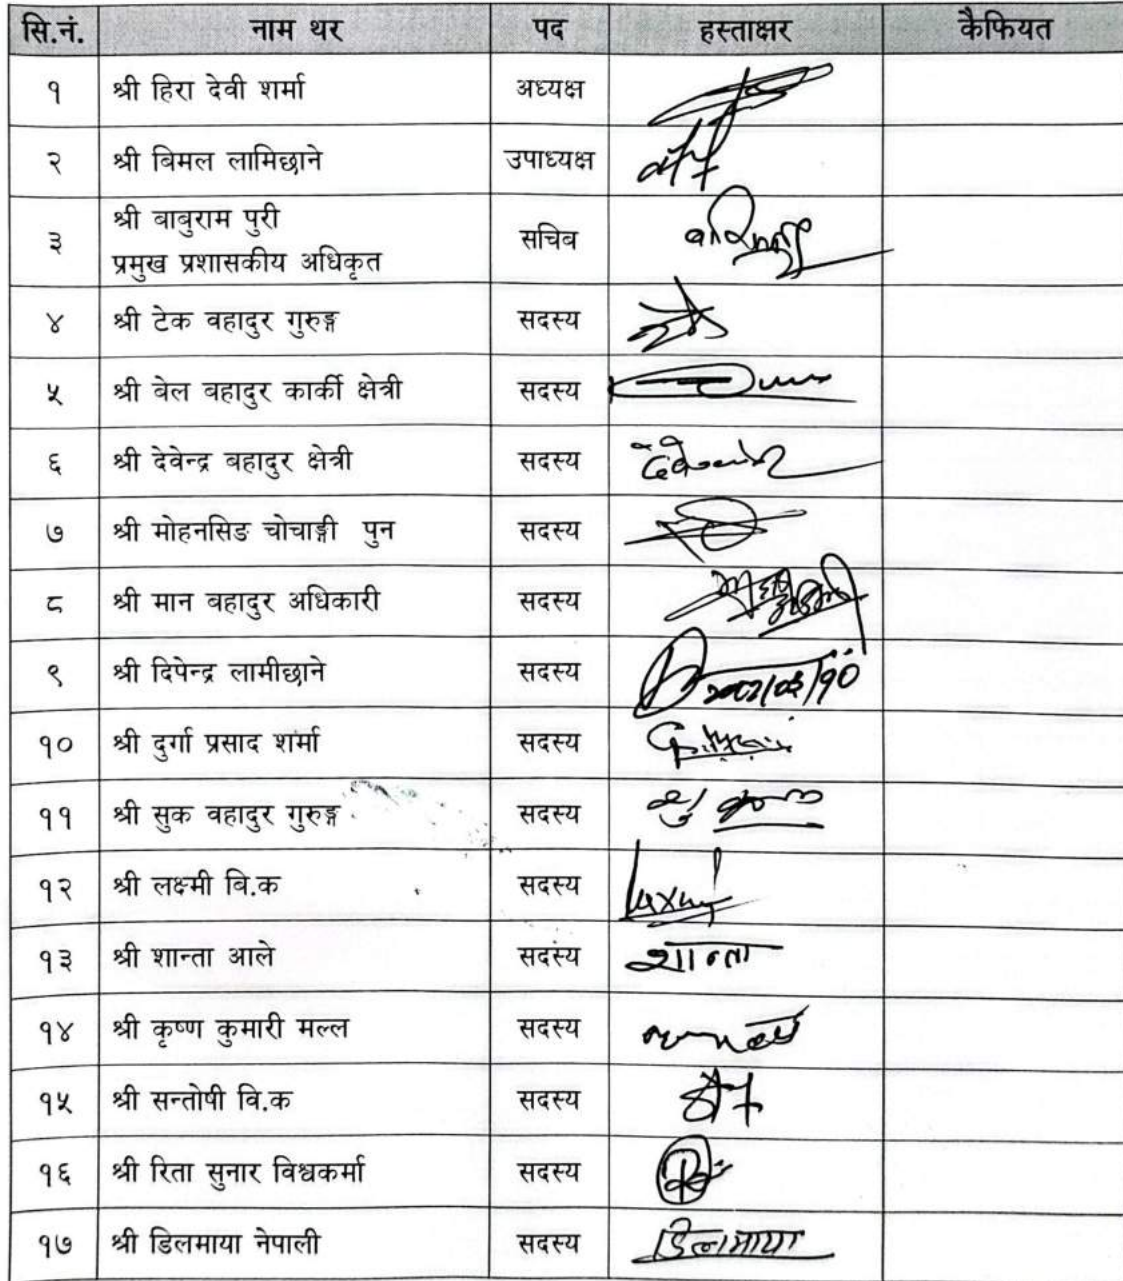 सि.नं. नाम थर पद हस्ताक्षर कैफियत
१ श्री हिरा देवी शर्मा अध्यक्ष
२ श्री बिमल लामिछाने उपाध्यक्ष
३ श्री बाबुराम पुरी सचिब
प्रमुख प्रशासकीय अधिकृत
४ श्री टेक वहादुर गुरुङ्ग सदस्य
५ श्री बेल बहादुर कार्की क्षेत्री सदस्य
६ श्री देवेन्द्र बहादुर क्षेत्री सदस्य
७ श्री मोहनसिङ चोचाङ्गी पुन सदस्य
८ श्री मान बहादुर अधिकारी सदस्य
९ श्री दिपेन्द्र लामीछाने सदस्य
१० श्री दुर्गा प्रसाद शर्मा सदस्य
११ श्री सुक वहादुर गुरुङ्ग सदस्य
१२ श्री लक्ष्मी बि.क सदस्य
१३ श्री शान्ता आले सदस्य शान्ता
१४ श्री कृष्ण कुमारी मल्ल सदस्य
१५ श्री सन्तोषी वि.क सदस्य
१६ श्री रिता सुनार विश्वकर्मा सदस्य
१७ श्री डिलमाया नेपाली सदस्य डिलमाया